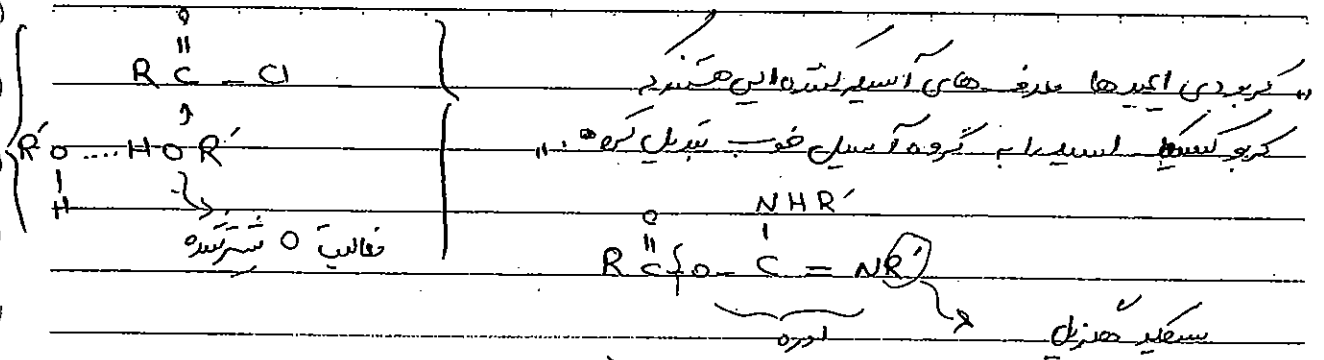 O
||
R C - Cl
R'O .... HOR'
|
H
فعالیت O بیشتر شده
„ کربودی ایمیدها معرف های آسیل کننده ایی هستند که
کربوکسیلیک اسید را به گروه آسیل خوب تبدیل کرده. "
O NHR'
|| |
R C - O - C = NR'
اوره
سیکلو هگزیل